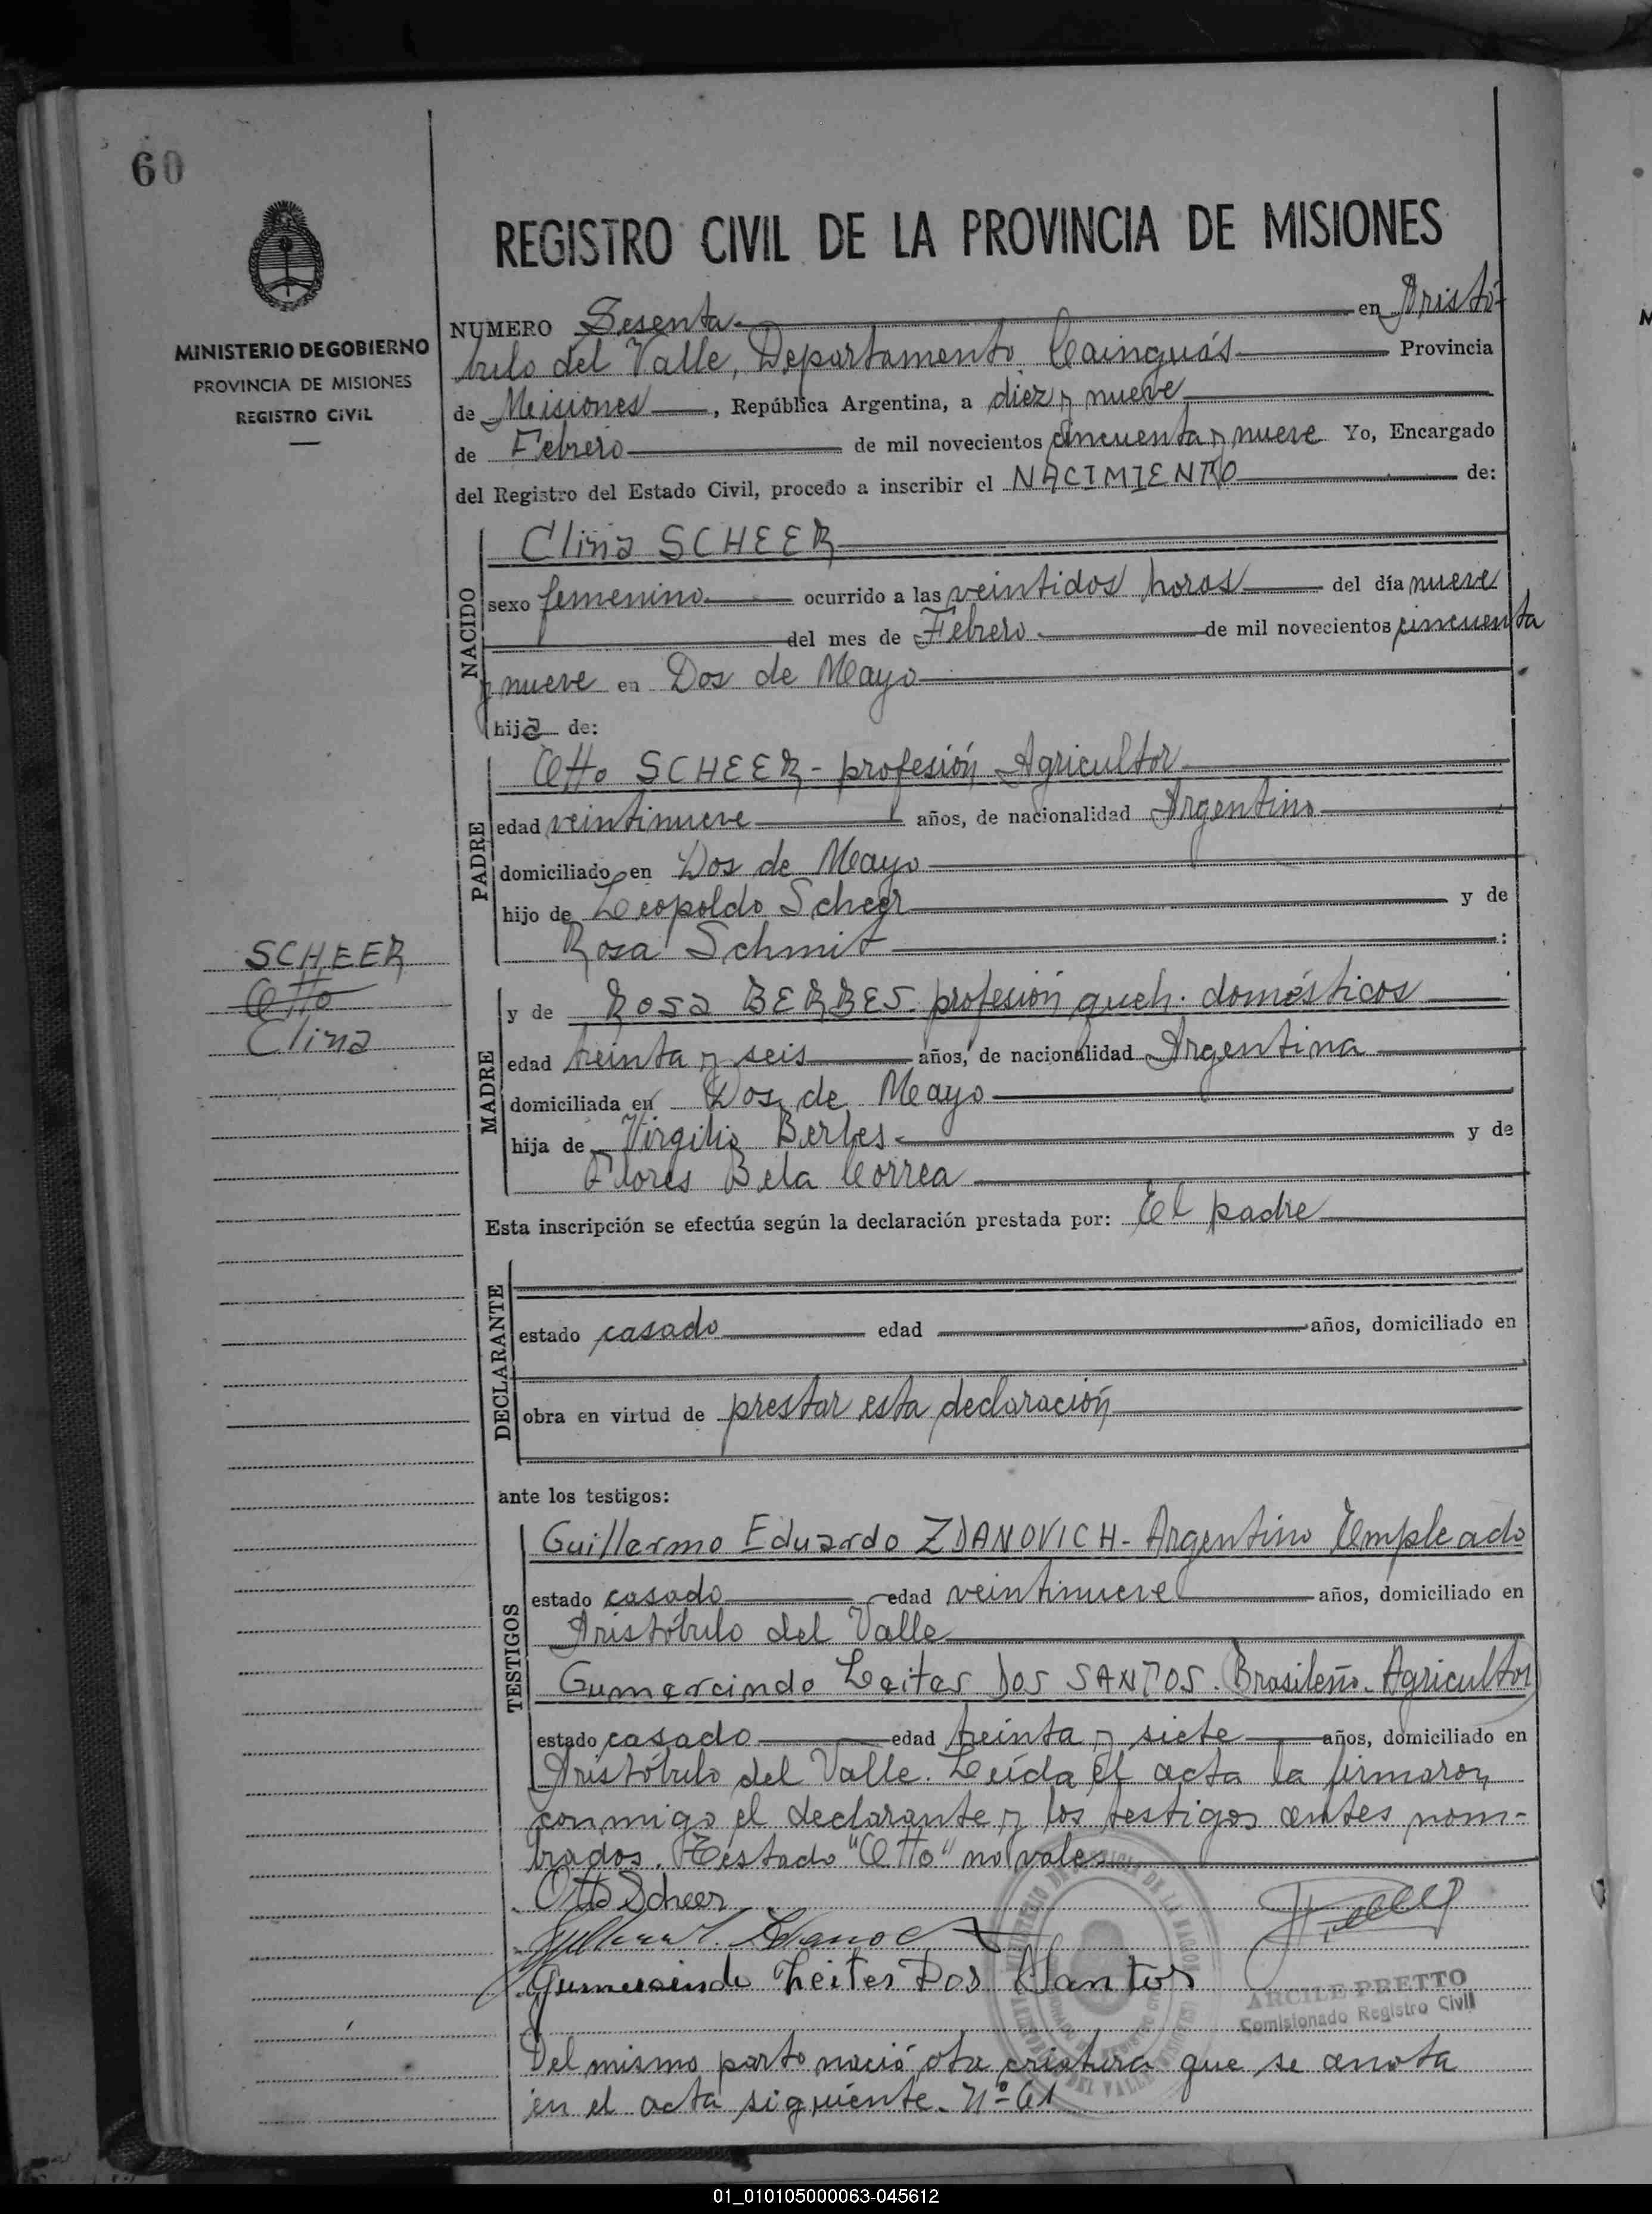 60
MINISTERIO DE GOBIERNO
PROVINCIA DE MISIONES
REGISTRO CIVIL
REGISTRO CIVIL DE LA PROVINCIA DE MISIONES
NUMERO Sesenta en Aristó-
bulo del Valle, Departamento Cainguás Provincia
de Misiones, República Argentina, a diez y nueve
de Febrero de mil novecientos cincuenta y nueve Yo, Encargado
del Registro del Estado Civil, procedo a inscribir el NACIMIENTO de:
NACIDO
Clina SCHEER
sexo femenino ocurrido a las veintidos horas del día nueve
del mes de Febrero de mil novecientos cincuenta
y nueve en Dos de Mayo
hija de:
PADRE
Otto SCHEER - profesión Agricultor
edad veintinueve años, de nacionalidad Argentino
domiciliado en Dos de Mayo
hijo de Leopoldo Scheer y de
Rosa Schmit :
SCHEER
Otto
Clina
MADRE
y de Rosa BERBES profesión queh. domésticos
edad treinta y seis años, de nacionalidad Argentina
domiciliada en Dos de Mayo
hija de Virgilio Berbes y de
Flores Bela Correa
Esta inscripción se efectúa según la declaración prestada por: El padre
DECLARANTE
estado casado edad años, domiciliado en
obra en virtud de prestar esta declaración
ante los testigos:
TESTIGOS
Guillermo Eduardo ZDANOVICH - Argentino Empleado
estado casado edad veintinueve años, domiciliado en
Aristóbulo del Valle
Gumercindo Leites DOS SANTOS. Brasileño. Agricultor
estado casado edad treinta y siete años, domiciliado en
Aristóbulo del Valle. Leída el acta la firmaron
conmigo el declarante y los testigos antes nom-
brados. Testado "Otto" no vale
Otto Scheer
Gumersindo Leites Dos Santos
ARCILE PRETTO
Comisionado Registro Civil
Del mismo parto nació otra criatura que se anota
en el acta siguiente. Nº 61
01_010105000063-045612